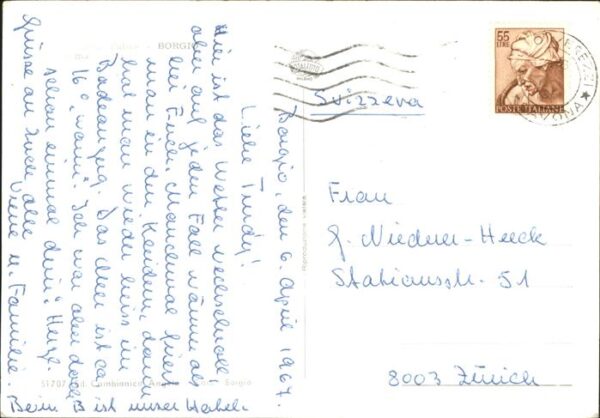 BORGIO
Borgio, den 6. April 1967.
Liebe Trudy!
Hier ist das Wetter wechselvoll,
aber auf jeden Fall wärmer als
bei Euch. Manchmal friert
man in den Kleidern, dann
hat man wieder heiss im
Badeanzug. Das Meer ist ca.
16° "warm". Ich war aber doch
schon einmal drin! Herzl.
Grüsse an Euch alle
Vrene u. Familie.
Beim B ist unser Hotel.
Svizzera
55
LIRE
POSTE ITALIANE
SAVONA
Frau
G. Niederer-Heeck
Stationsstr. 51
8003 Zürich
Riproduzione vietata
51707 Ed. Cambianica Angelo Borgio